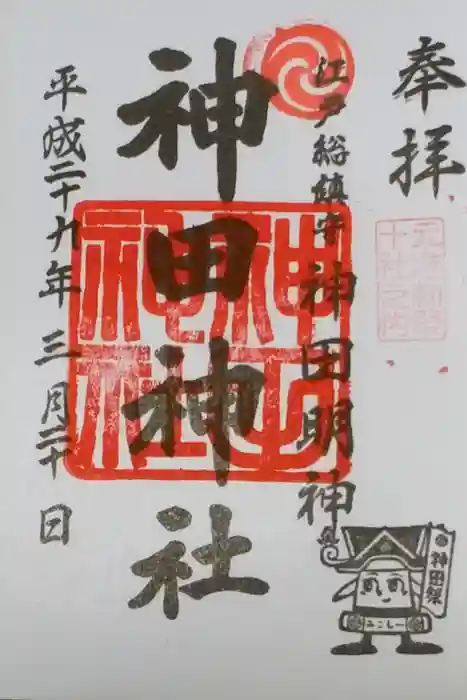 奉拝
元准勅祭
十社之内
江戸総鎮守 神田明神
神田神社
神田
神社
平成二十九年 三月二十日
神田祭
みこしー